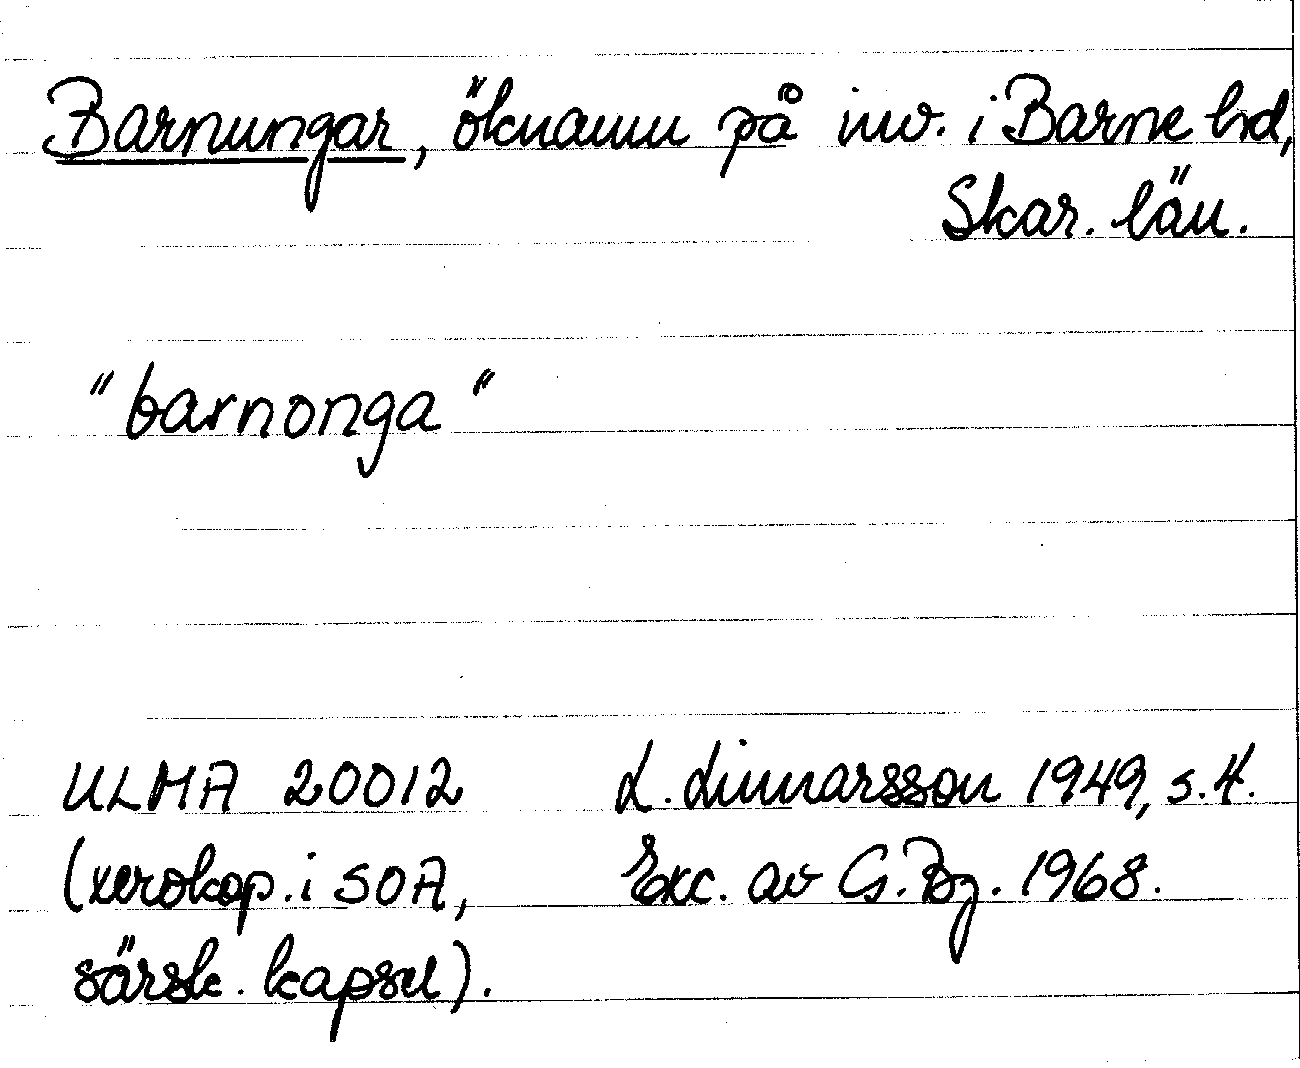 Barnungar, öknamn på inv. i Barne hd,
Skar. län.
"barnonga"
ULMA 20012 L. Linnarsson 1949, s. 4.
(xerokop. i SOA, Exc. av G. Bg. 1968.
särsk. kapsel).